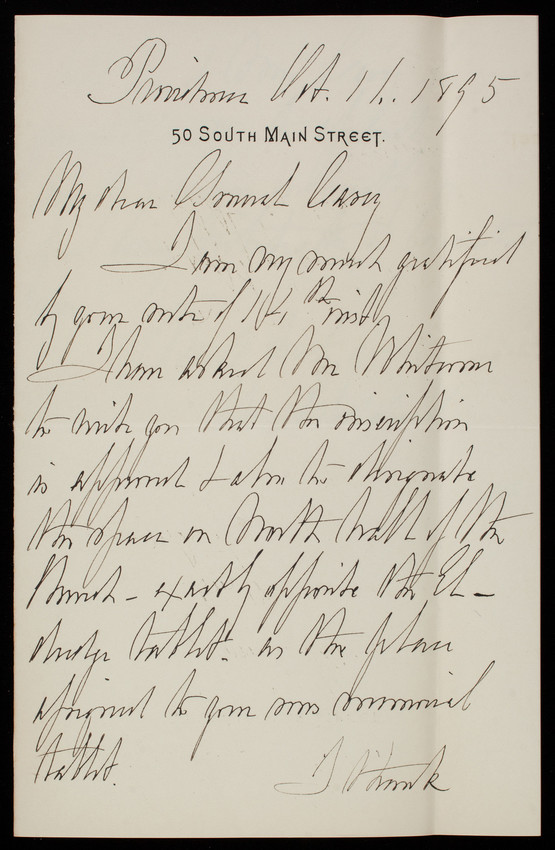 Providence Oct. 16. 1895
50 SOUTH MAIN STREET.
My dear General Casey
I am very much gratified
by your note of 14th inst,
I have asked Mr Whitman
to write you that the inscription
is approved & also to designate
the space on North wall of the
Church - exactly opposite the El-
dredge tablet - as the place
assigned to your sons memorial
tablet.
I think